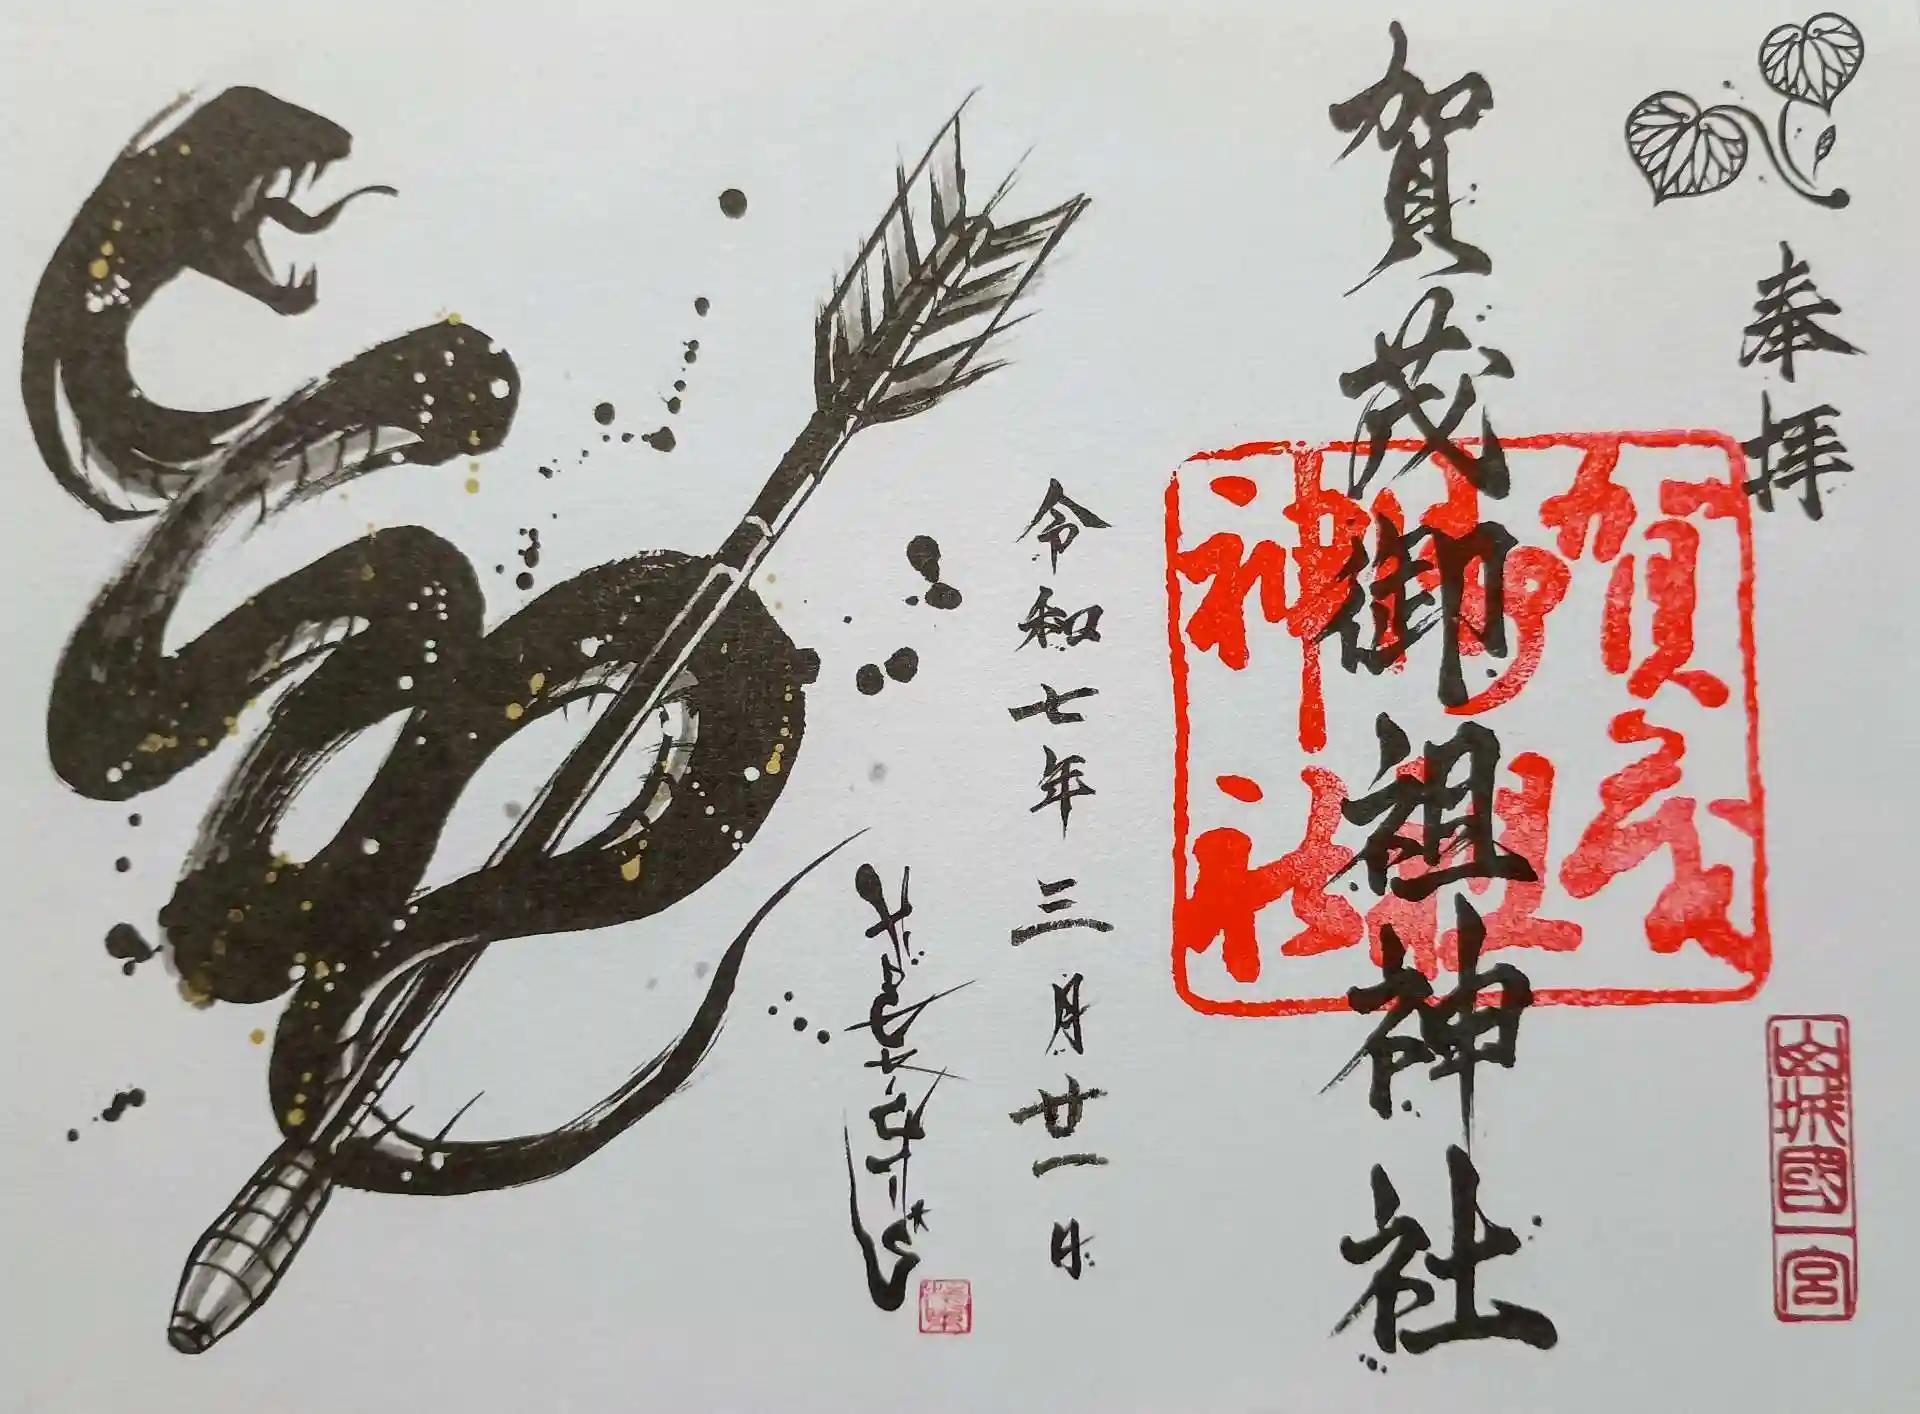 奉拝
山城國一宮
賀茂御祖神社
賀茂御祖神社
令和七年三月廿一日